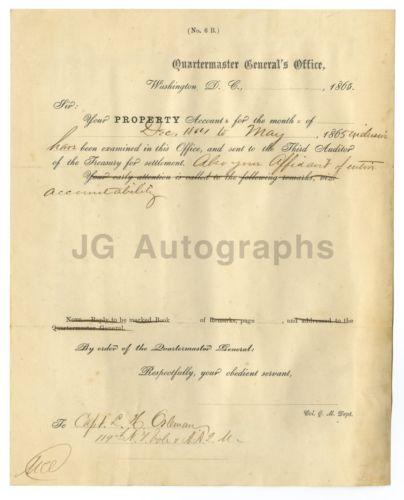 (No. 6 B.)
Quartermaster General's Office,
Washington, D. C., , 1865.
Sir:
Your PROPERTY Accounts for the months of
Dec. 1864 to May , 1865 inclusive
have been examined in this Office, and sent to the Third Auditor
of the Treasury for settlement. Also your Affidavit of entire
Your early attention is called to the following remarks, viz:
accountability
JG Autographs
Note.—Reply to be marked Book of Remarks, page , and addressed to the
Quartermaster General.
By order of the Quartermaster General:
Respectfully, your obedient servant,
Col. Q. M. Dept.
To Capt. L. H.
119th N.Y. Vols & A.A.Q.M.